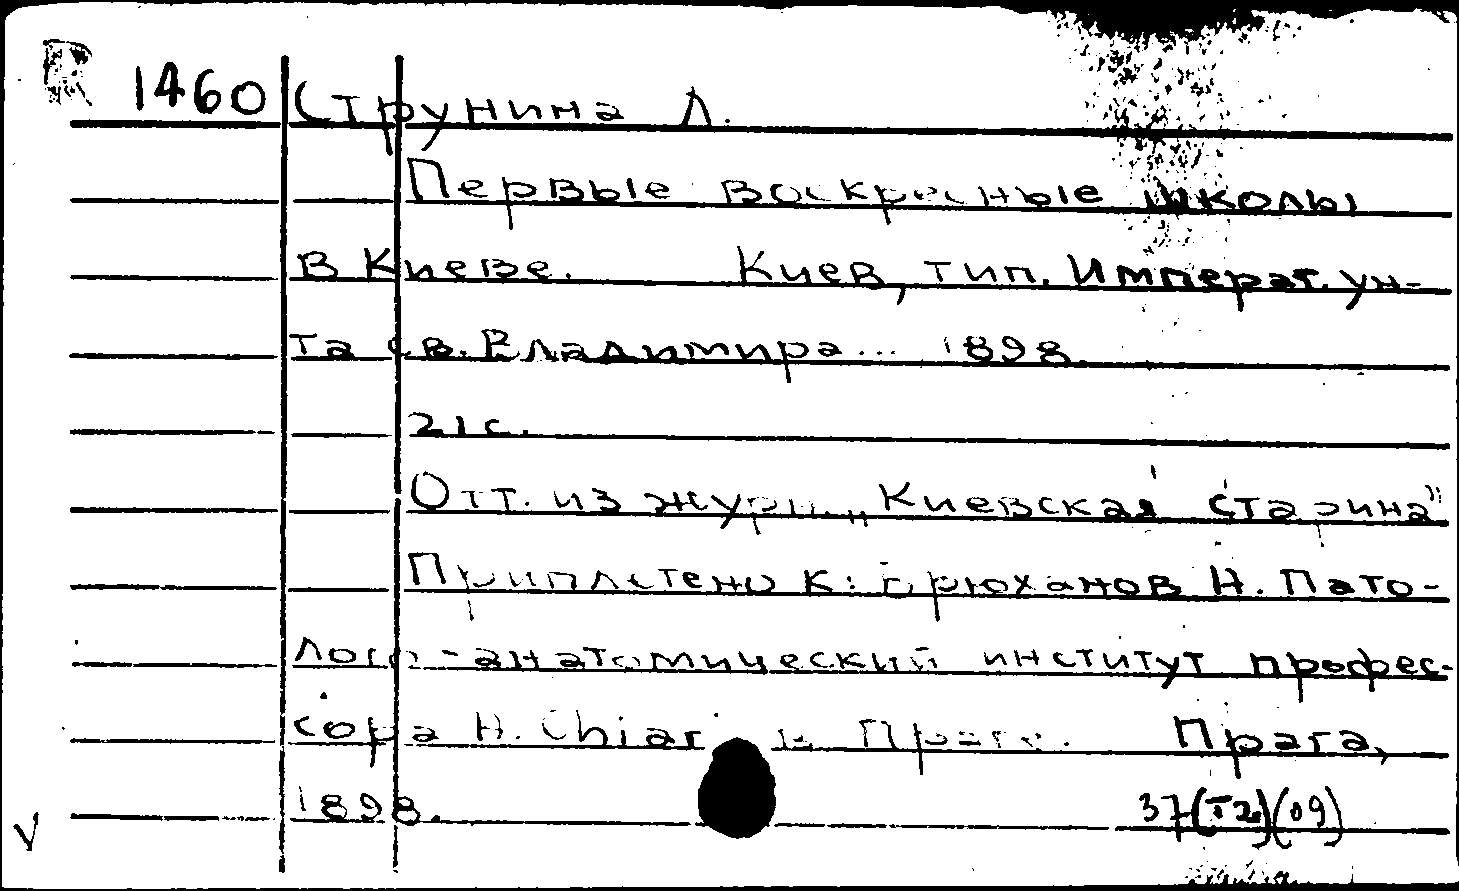 1460 Струнина Л.
Первые воскресные школы
в Киеве. Киев, тип. Императ. ун-
та св. Владимира... 1898.
21 с.
Отт. из журн. „Киевская старина"
Приплетено к: Брюханов Н. Пато-
лого-анатомический институт профес-
сора H. Chiari в Праге. Прага,
1898.
37(T2)(09)
V